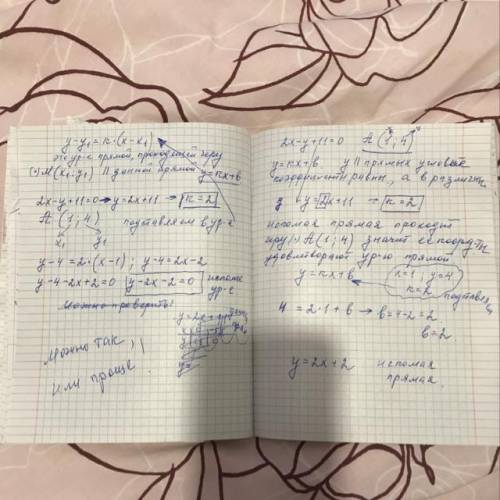 y-y₁=k·(x-x₁)
это ур-е прямой, проходящей через
(·) M(x₁; y₁) || данной прямой y=kx+b
2x-y+11=0 → y=2x+11 → k=2
A(1; 4) подставляем в ур-е
x₁ y₁
y-4=2·(x-1); y-4=2x-2
y-4-2x+2=0 y-2x-2=0 искомое
ур-е
Можно проверить!
Можно так,
или проще
2x-y+11=0 A(1; 4)
y=kx+b у || прямых угловые
коэффициенты равны, а b различны
y=2x+11 → k=2
искомая прямая проходит
(·) A(1; 4) значит её координаты
удовлетворяют ур-ю прямой
y=kx+b x=1; y=4
k=2
подставляем
4=2·1+b → b=4-2=2
b=2.
y=2x+2 искомая
прямая.